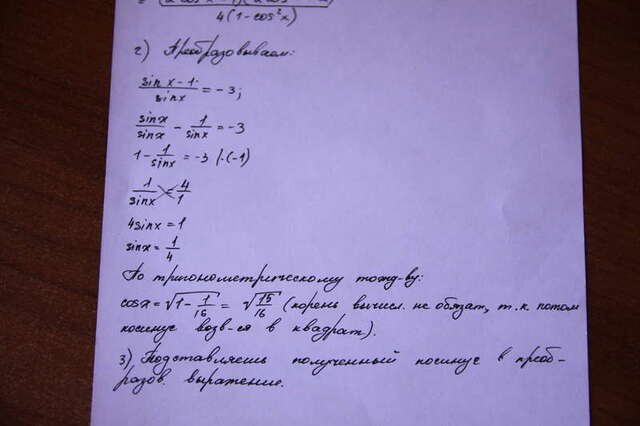 4(1-cos²x)
2) Преобразовываем:
(sin x - 1)/sin x = -3;
sinx/sinx - 1/sinx = -3
1 - 1/sinx = -3 |·(-1)
1/sinx = 4/1
4sinx = 1
sinx = 1/4
По тригонометрическому тожд-ву:
cosx = √(1 - 1/16) = √(15/16) (корень вычисл. не обязат, т.к. потом
косинус возв-ся в квадрат).
3) Подставляешь полученный косинус в преоб-
разов. выражение.